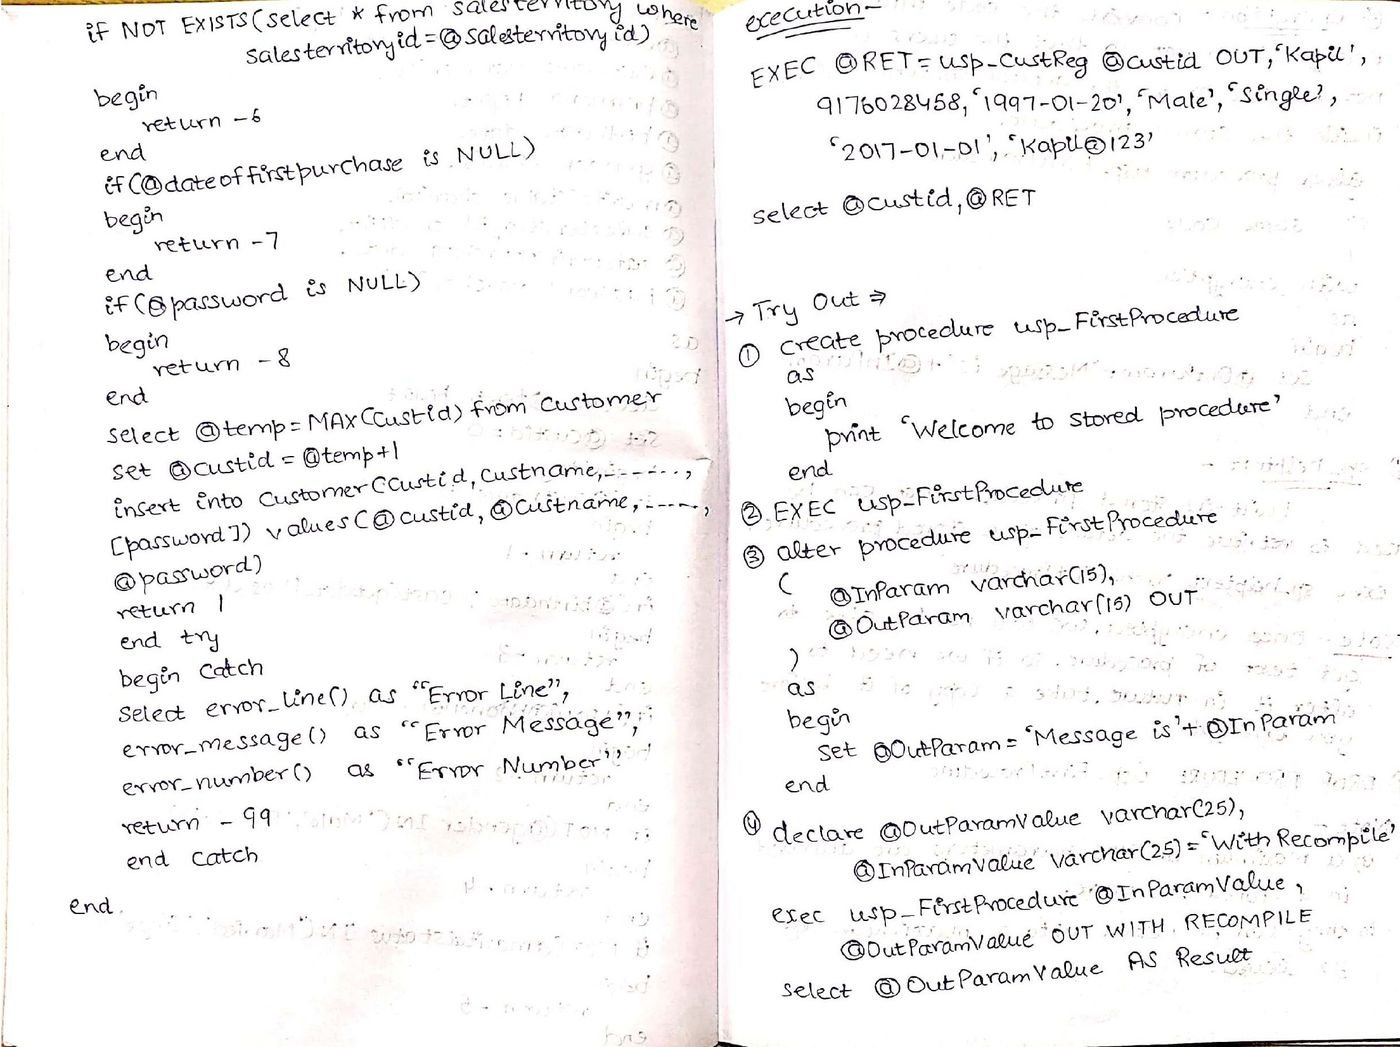 if NOT EXISTS(select * from salesterritory where
salesterritoryid=@salesterritoryid)
begin
return -6
end
if(@dateoffirstpurchase is NULL)
begin
return -7
end
if(@password is NULL)
begin
return -8
end
select @temp=MAX(custid) from customer
set @custid = @temp+1
insert into customer(custid, custname,------,
[password]) values(@custid, @custname,-----,
@password)
return 1
end try
begin catch
select error_line() as "Error Line",
error_message() as "Error Message",
error_number() as "Error Number"
return -99
end catch
end.
execution-
EXEC @RET=usp_CustReg @custid OUT,'Kapil',
9176028458,'1997-01-20','Male','Single',
'2017-01-01','Kapil@123'
select @custid,@RET
→ Try Out ⇒
① create procedure usp_FirstProcedure
as
begin
print 'Welcome to stored procedure'
end
② EXEC usp_FirstProcedure
③ alter procedure usp_FirstProcedure
(
@InParam varchar(15),
@OutParam varchar(15) OUT
)
as
begin
set @OutParam='Message is'+@InParam
end
④ declare @OutParamValue varchar(25),
@InParamValue varchar(25)='With Recompile'
exec usp_FirstProcedure @InParamValue,
@OutParamValue OUT WITH RECOMPILE
select @OutParamValue AS Result